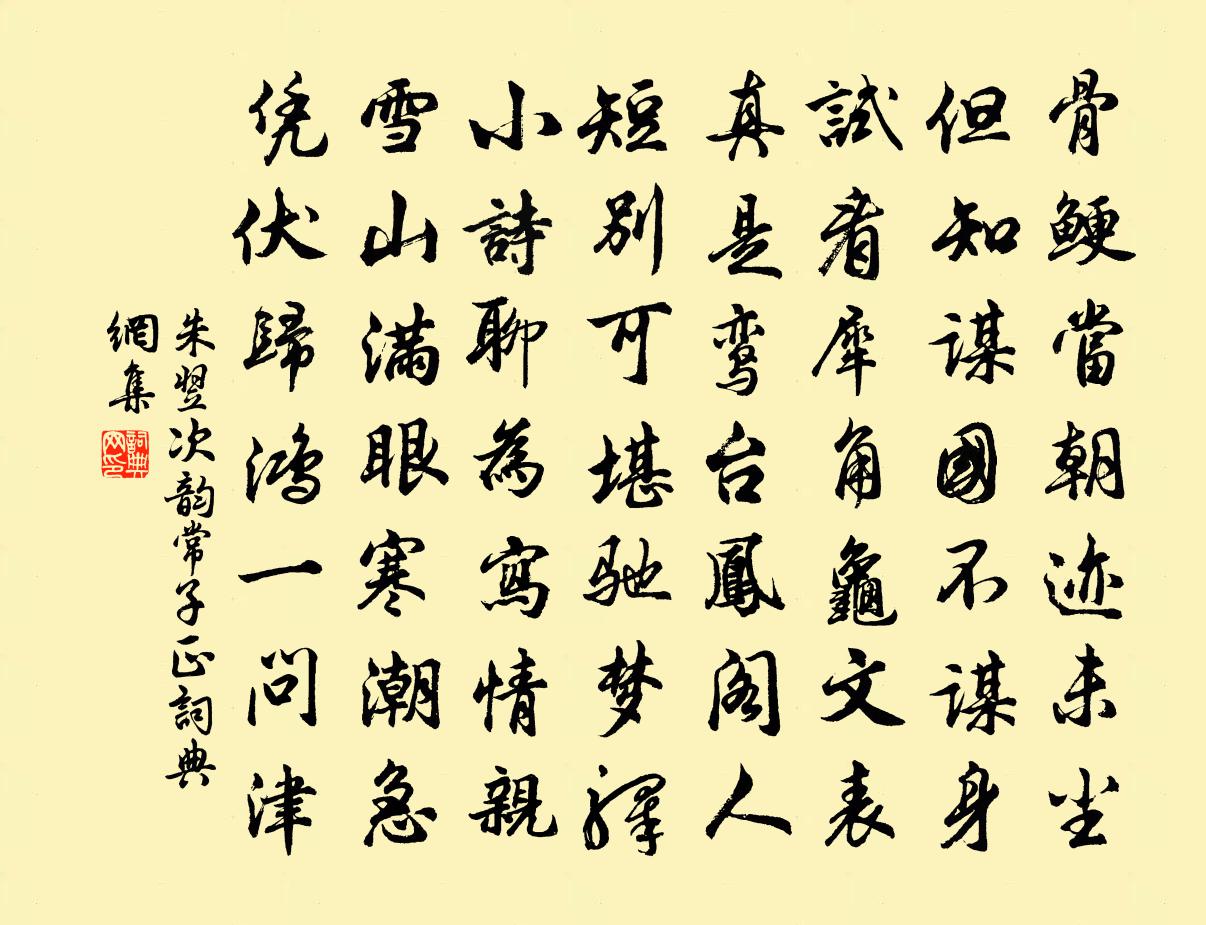 骨鲠當朝迹未尘
但知謀國不謀身
試看犀角龜文表
真是鸾台鳳阁人
短别可堪驰梦驛
小詩聊為寫情親
雪山满眼寒潮急
凭伏歸鸿一问津
朱翌次韵常子正詞典
網集
詞典网印